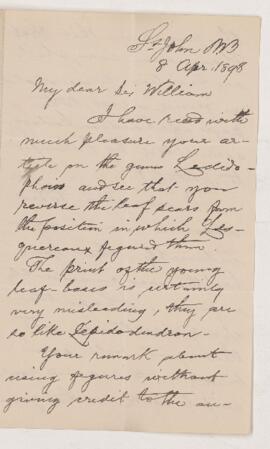 St John NB
8 Apr. 1898
My dear Sir William
I have read with
much pleasure your ar-
ticle on the genus Lepido-
phloios and see that you
reverse the leaf scars from
the position in which Les-
quereaux figured them.
The print of the young
leaf-bases is certainly
very misleading, they are
so like Lepidodendron.
Your remark about
using figures without
giving credit to the au-